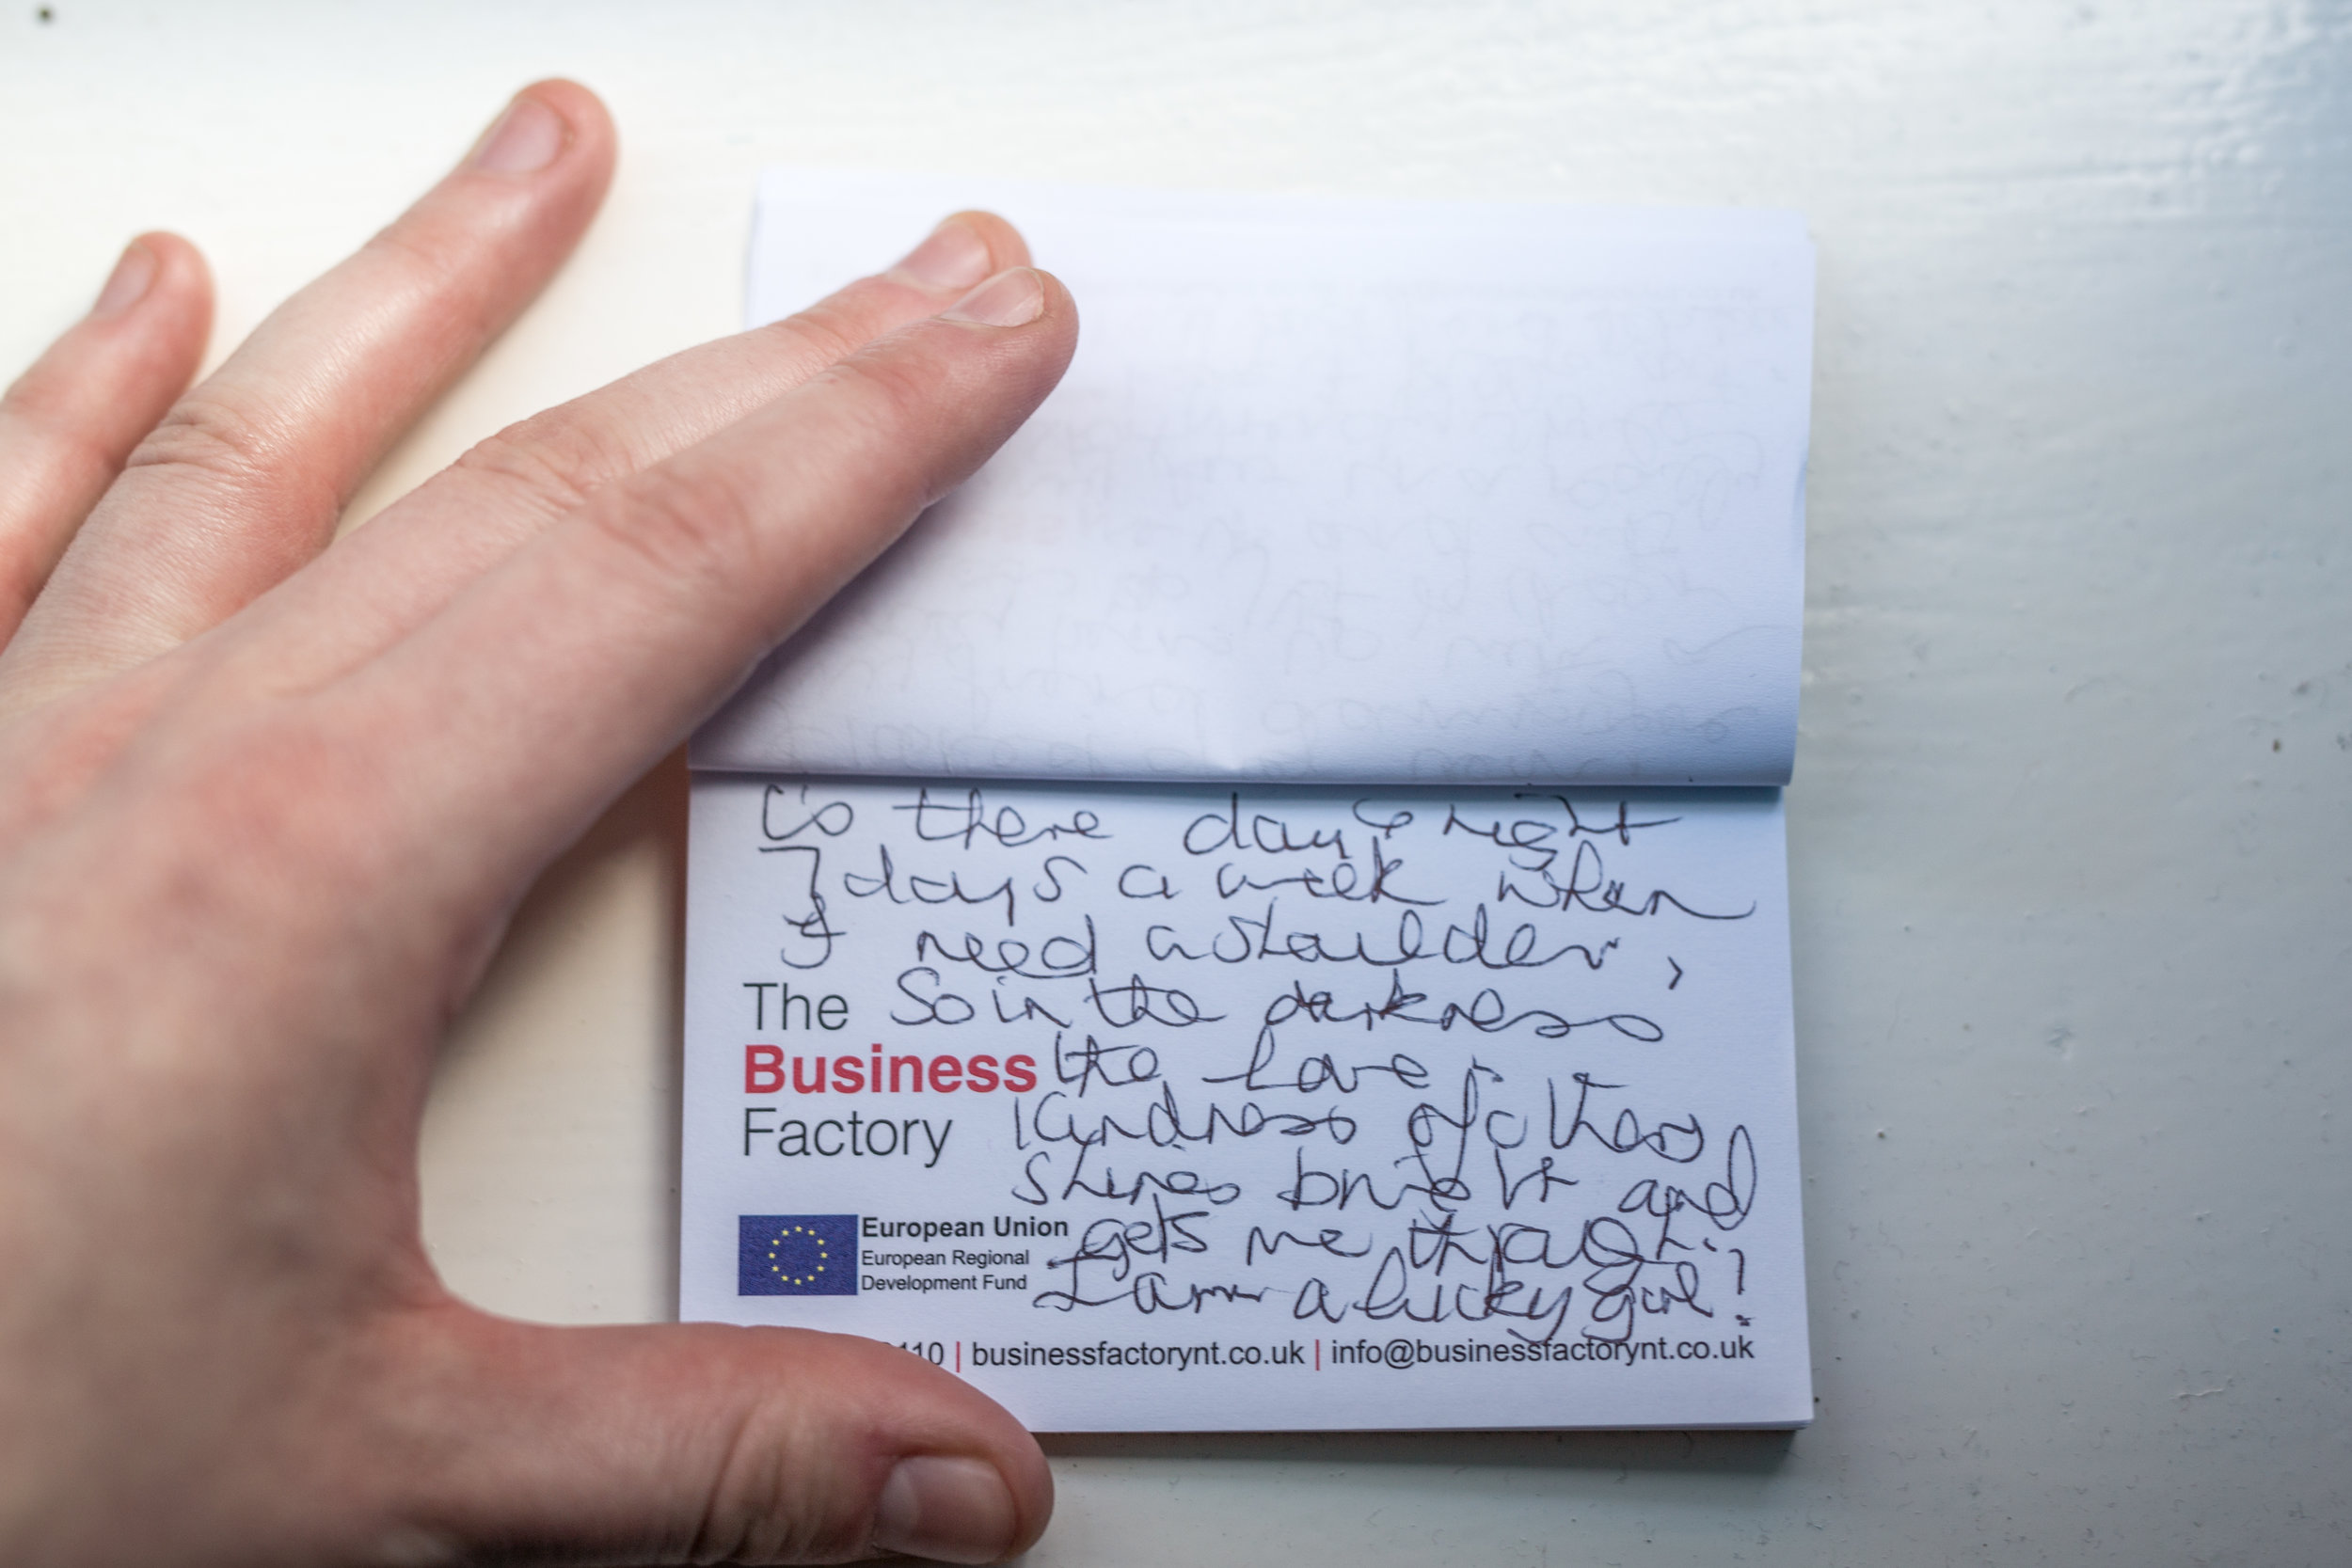 is there day & night
7 days a week when
I need a shoulder,
The
Business
Factory
So in the darkness
the love &
kindness of others
shines bright and
gets me through.
I am a lucky girl!
European Union
European Regional
Development Fund
110 | businessfactorynt.co.uk | info@businessfactorynt.co.uk